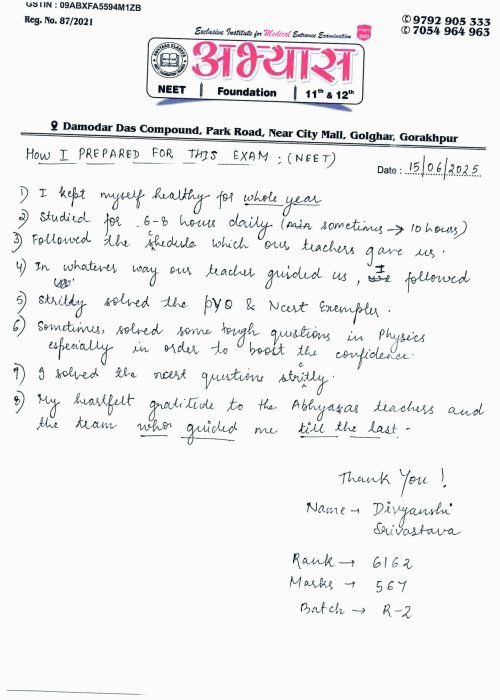 GSTIN : 09ABXFA5594M1ZB
Reg. No. 87/2021
9792 905 333
7054 964 963
Exclusive Institute for Medical Entrance Examination
अभ्यास
NEET | Foundation | 11th & 12th
Damodar Das Compound, Park Road, Near City Mall, Golghar, Gorakhpur
HOW I PREPARED FOR THIS EXAM : (NEET)
Date : 15/06/2025
1) I kept myself healthy for whole year
2) Studied for 6-8 hours daily (min sometimes → 10 hours)
3) Followed the schedule which our teachers gave us.
4) In whatever way our teacher guided us, I followed
5) Strictly solved the PYQ & Ncert Exempler.
6) Sometimes, solved some tough questions in Physics
especially in order to boost the confidence.
7) I solved the ncert questions strictly.
8) My heartfelt gratitude to the Abhyasas teachers and
the team who guided me till the last.
Thank You !
Name → Divyanshi
Srivastava
Rank → 6162
Marks → 567
Batch → R-2